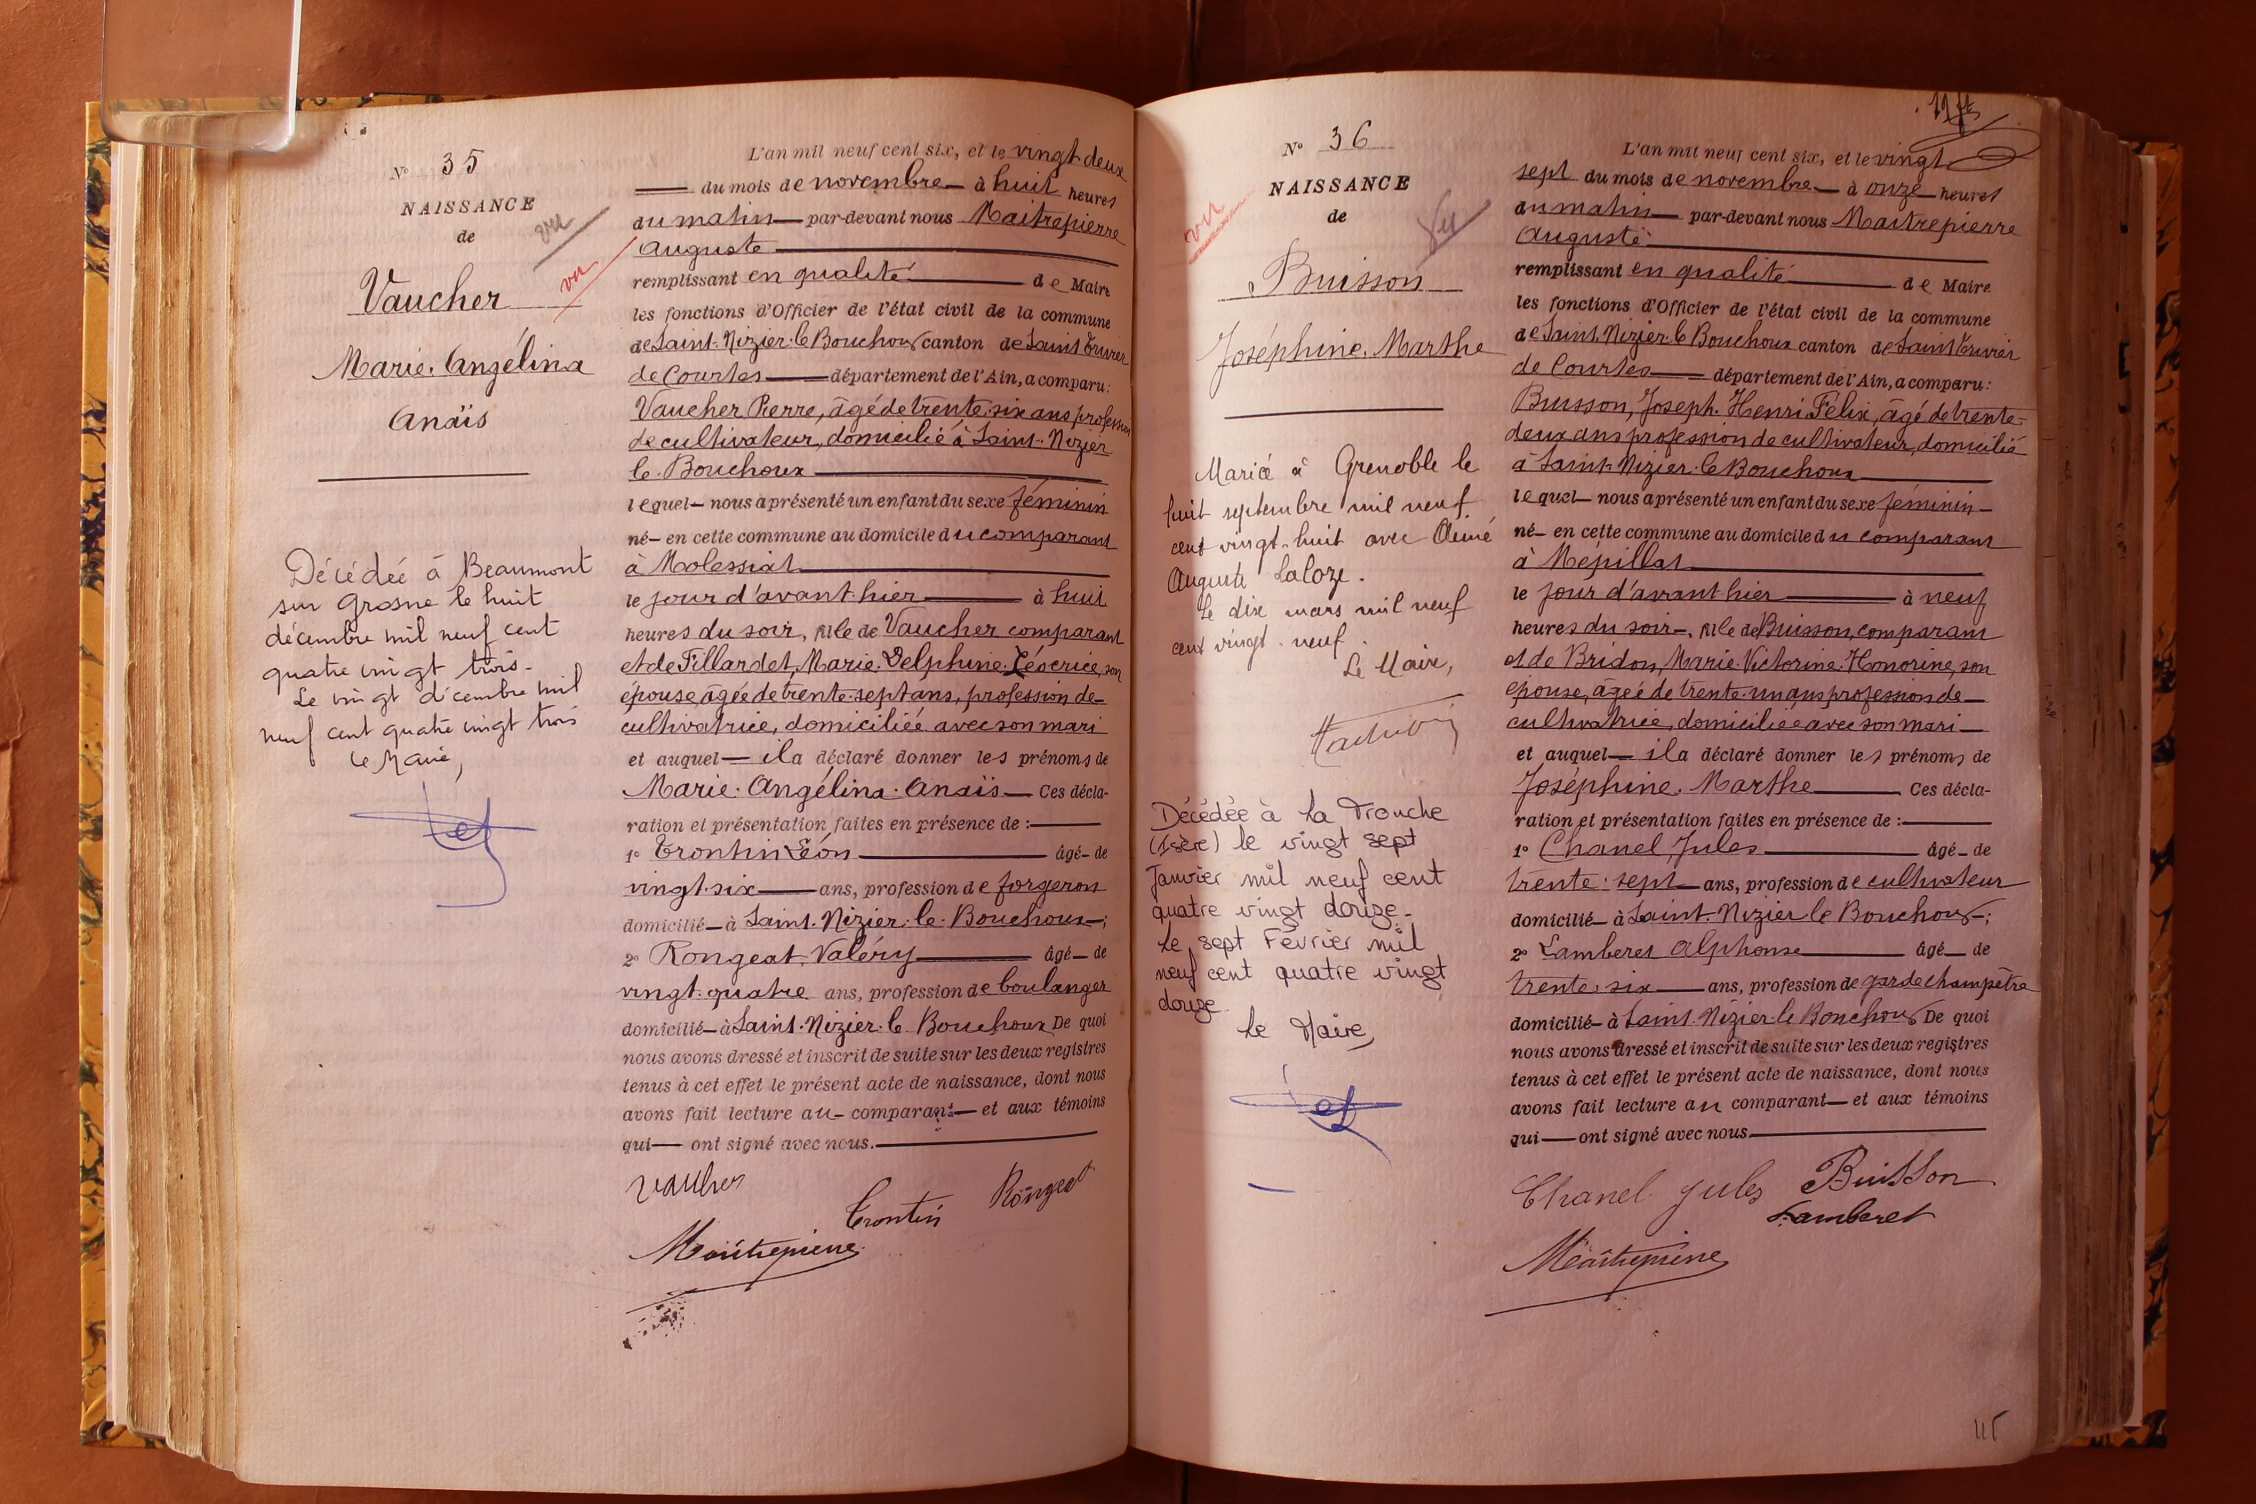 N° 35
NAISSANCE
de
vu
vu
Vaucher
Marie. Angélina
Anaïs
Décédée à Beaumont
sur Grosne le huit
décembre mil neuf cent
quatre vingt trois.
Le vingt décembre mil
neuf cent quatre vingt trois
Le Maire,
L'an mil neuf cent six, et le vingt deux
du mois de novembre à huit heures
du matin par-devant nous Maitrepierre
Auguste
remplissant en qualité de Maire
les fonctions d'Officier de l'état civil de la commune
de Saint. Nizier. le Bouchoux canton de Saint Trivier
de Courtes département de l'Ain, a comparu:
Vaucher Pierre, âgé de trente. six ans profession
de cultivateur, domicilié à Saint. Nizier
le. Bouchoux
lequel nous a présenté un enfant du sexe féminin
né en cette commune au domicile du comparant
à Molessiat
le jour d'avant. hier à huit
heures du soir, fille de Vaucher comparant
et de Fillardet, Marie. Delphine. son
épouse, âgée de trente. sept ans, profession de
cultivatrice, domiciliée avec son mari
et auquel il a déclaré donner les prénoms de
Marie. Angélina. Anaïs Ces décla-
ration et présentation faites en présence de :
1° Trontin Léon âgé de
vingt. six ans, profession de forgeron
domicilié à Saint. Nizier. le. Bouchoux ;
2° Rongeat. Valéry âgé de
vingt. quatre ans, profession de boulanger
domicilié à Saint. Nizier. le Bouchoux De quoi
nous avons dressé et inscrit de suite sur les deux registres
tenus à cet effet le présent acte de naissance, dont nous
avons fait lecture au comparant et aux témoins
qui ont signé avec nous.
Vaucher
Trontin
Rongeat
Maitrepierre
N° 36
NAISSANCE
de
vu
Vu
Buisson
Joséphine. Marthe
Mariée à Grenoble le
huit septembre mil neuf
cent vingt-huit avec Aimé
Auguste Laloze.
Le dix mars mil neuf
cent vingt-neuf.
Le Maire,
Décédée à La Tronche
(Isère) le vingt sept
Janvier mil neuf cent
quatre vingt douze.
Le sept Février mil
neuf cent quatre vingt
douze.
Le Maire,
L'an mil neuf cent six, et le vingt
sept du mois de novembre à onze heures
du matin par-devant nous Maitrepierre
Auguste
remplissant en qualité de Maire
les fonctions d'Officier de l'état civil de la commune
de Saint. Nizier. le Bouchoux canton de Saint Trivier
de Courtes département de l'Ain, a comparu:
Buisson, Joseph. Henri Felix, âgé de trente-
deux ans profession de cultivateur, domicilié
à Saint. Nizier. le Bouchoux
lequel nous a présenté un enfant du sexe féminin
né en cette commune au domicile du comparant
à Mépillat
le jour d'avant hier à neuf
heures du soir, fille de Buisson, comparant
et de Bridon, Marie. Victorine. Honorine, son
épouse, âgée de trente. un ans profession de
cultivatrice, domiciliée avec son mari
et auquel il a déclaré donner les prénoms de
Joséphine. Marthe Ces décla-
ration et présentation faites en présence de :
1° Chanel, Jules âgé de
trente. sept ans, profession de cultivateur
domicilié à Saint. Nizier le Bouchoux ;
2° Lamberet Alphonse âgé de
trente. six ans, profession de garde champêtre
domicilié à Saint. Nizier. le Bouchoux De quoi
nous avons dressé et inscrit de suite sur les deux registres
tenus à cet effet le présent acte de naissance, dont nous
avons fait lecture au comparant et aux témoins
qui ont signé avec nous
Chanel Jules
Buisson
Lamberet
Maitrepierre